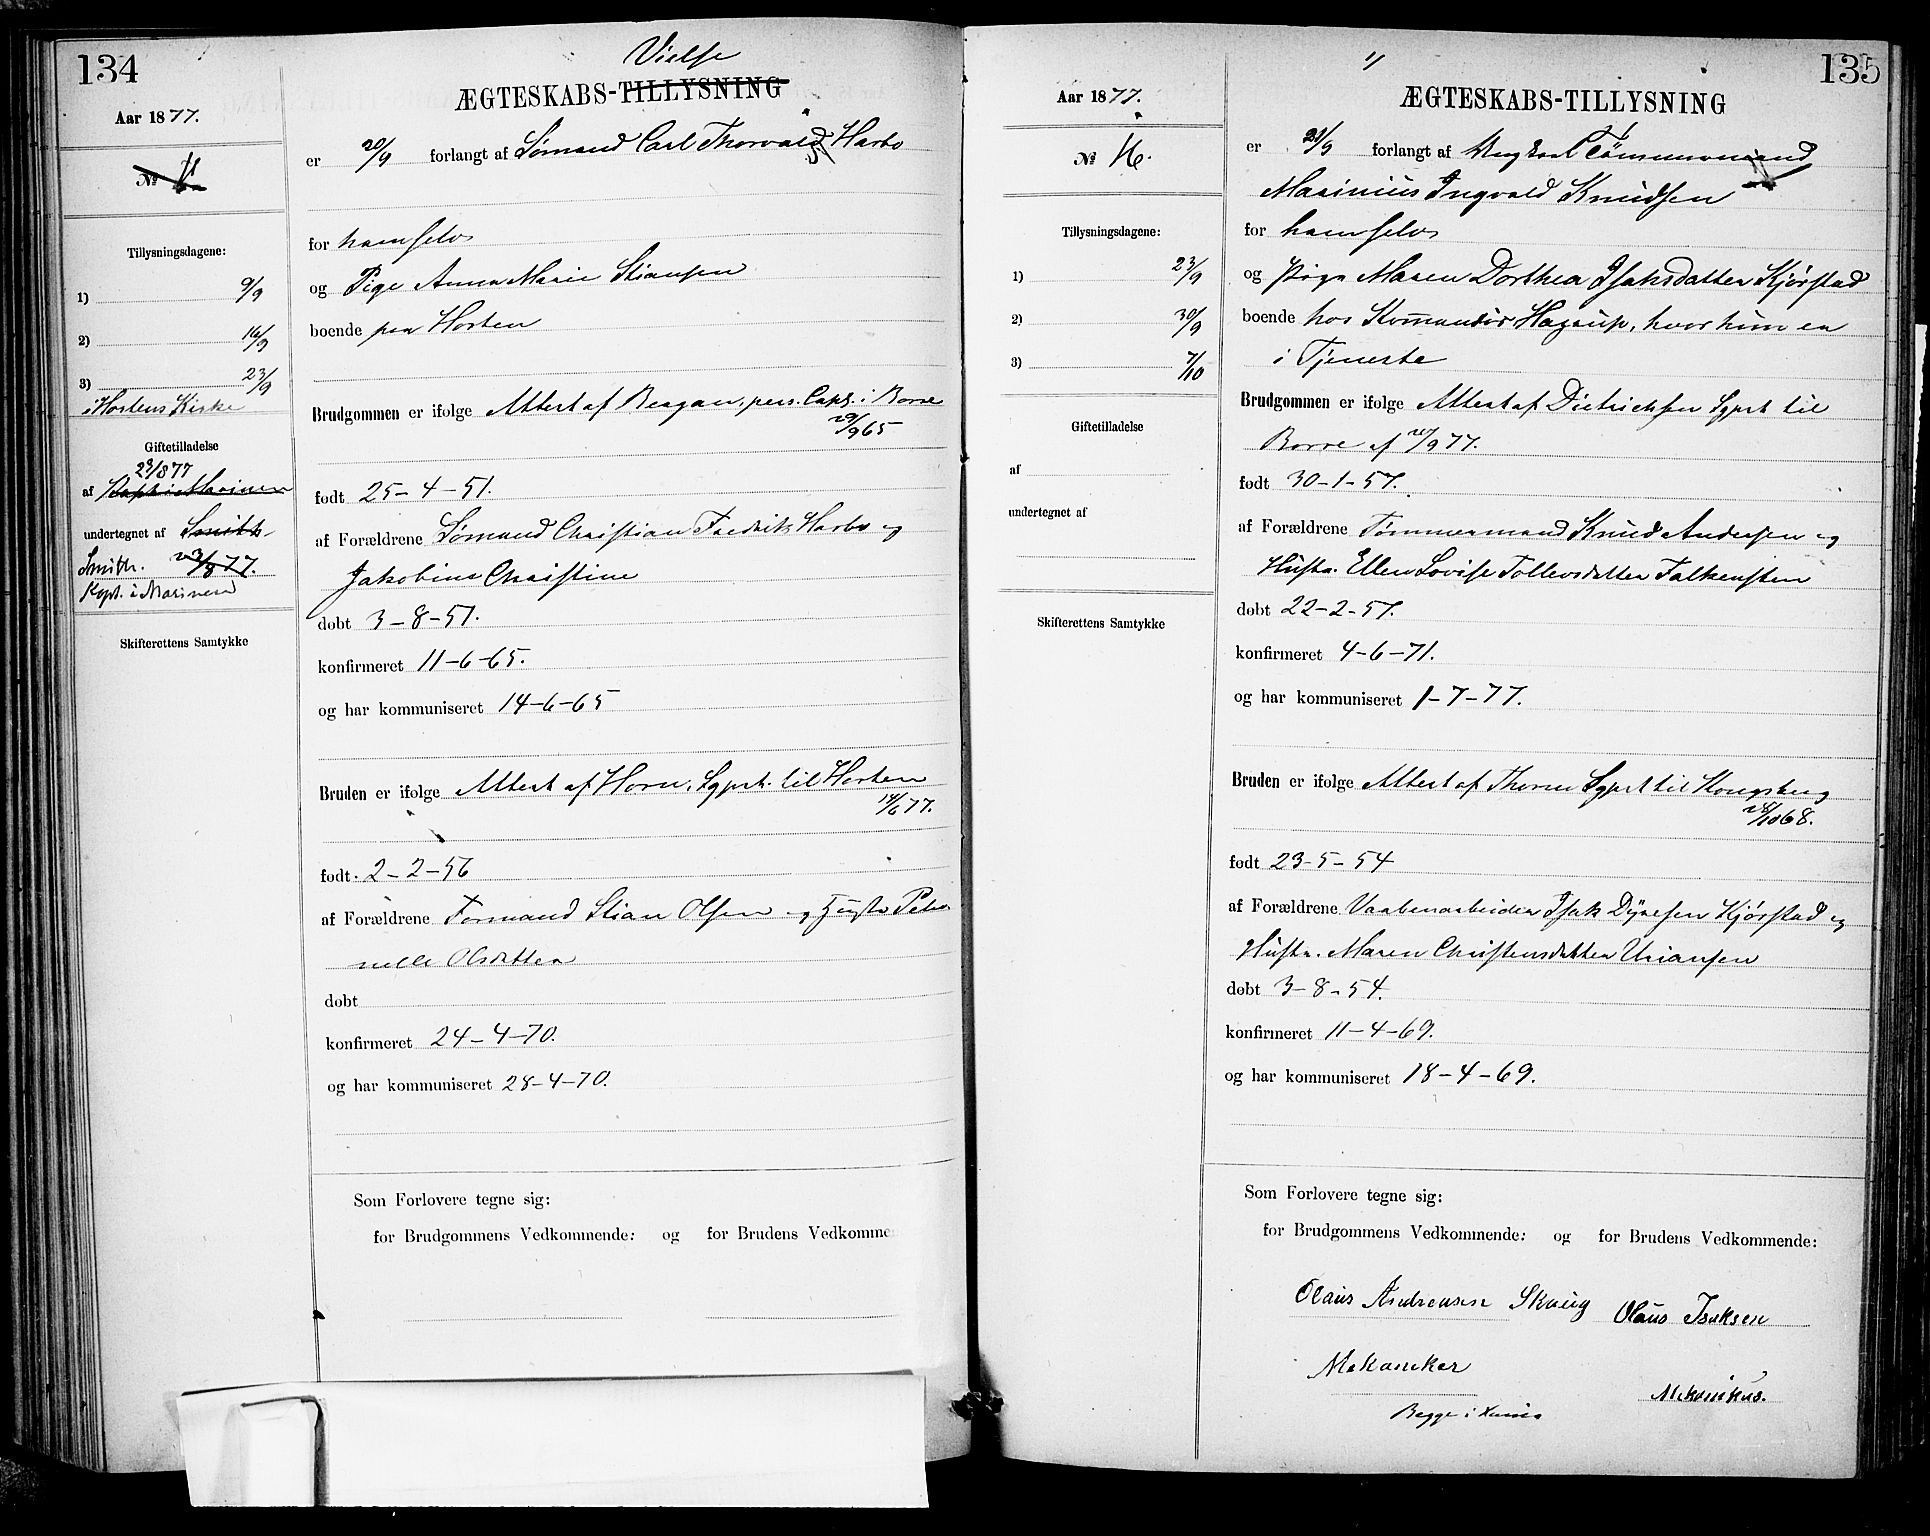 134
Aar 1877.
№
Tillysningsdagene:
1) 9/9
2) 16/9
3) 23/9
i Hortens Kirke
Giftetilladelse
23/8 77
af Kapt. i Marinen
undertegnet af Smith
Smith. 23/8 77.
Kapt. i Marinen
Skifterettens Samtykke
Vielse
ÆGTESKABS-TILLYSNING
er 20/9 forlangt af Sømand Carl Thorvald Harbo
for ham selv
og Pige Anna Marie Stiansen
boende paa Horten
Brudgommen er ifølge Attest af Bergan, pers. Capl. i Borre
29/9 65
født 25-4-51.
af Forældrene Sømand Christian Fredrik Harbo og
Jakobine Christine
døbt 3-8-51.
konfirmeret 11-6-65.
og har kommuniseret 14-6-65
Bruden er ifølge Attest af Horn, Sgprst. til Horten
14/6 77.
født 2-2-56
af Forældrene Formand Stian Olsen og Hustr. Petro
nelle Olsdatter
døbt
konfirmeret 24-4-70.
og har kommuniseret 28-4-70.
Som Forlovere tegne sig:
for Brudgommens Vedkommende: og for Brudens Vedkomme
135
Aar 1877.
№ 16.
Tillysningsdagene:
1) 23/9
2) 30/9
3) 7/10
Giftetilladelse
af
undertegnet af
Skifterettens Samtykke
ÆGTESKABS-TILLYSNING
er 21/9 forlangt af Ungkarl Tømmermand
Marinius Ingvald Knudsen
for ham selv
og Pige Maren Dorthea Isaksdatter Kjørstad
boende hos Komandør Hagerup, hvor hun er
i Tjeneste
Brudgommen er ifølge Attest af Dietrichsen Sgprst til
Borre af 20/9 77.
født 30-1-57.
af Forældrene Tømmermand Knud Andersen og
Hustr. Ellen Lovise Tollevsdatter Falkensten
døbt 22-2-57.
konfirmeret 4-6-71.
og har kommuniseret 1-7-77.
Bruden er ifølge Attest af Thorne Sgprst til Kongsberg
28/10 68.
født 23-5-54
af Forældrene Vaabenarbeider Isak Dyresen Kjørstad og
Hustr. Maren Christensdatter Uriansen
døbt 3-8-54.
konfirmeret 11-4-69.
og har kommuniseret 18-4-69.
Som Forlovere tegne sig:
for Brudgommens Vedkommende: og for Brudens Vedkommende:
Olaus Andreasen Skoug Olaus Isaksen
Mekaniker
Mekanikus.
Begge i